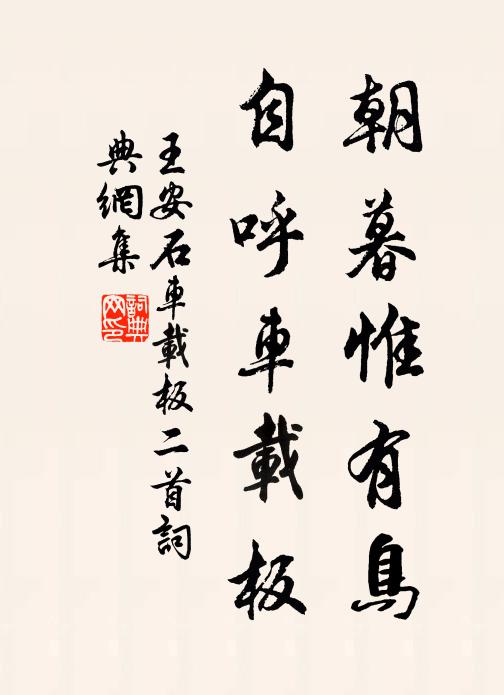 朝暮惟有鳥
自呼車載板
王安石車載板二首詞
典網集
詞典
网印